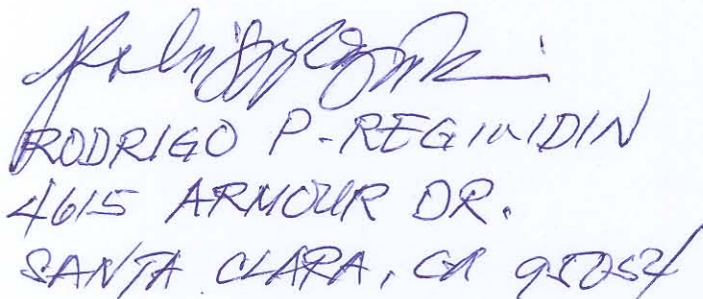 RODRIGO P. REGINIDIN
4615 ARMOUR DR.
SANTA CLARA, CA 95054